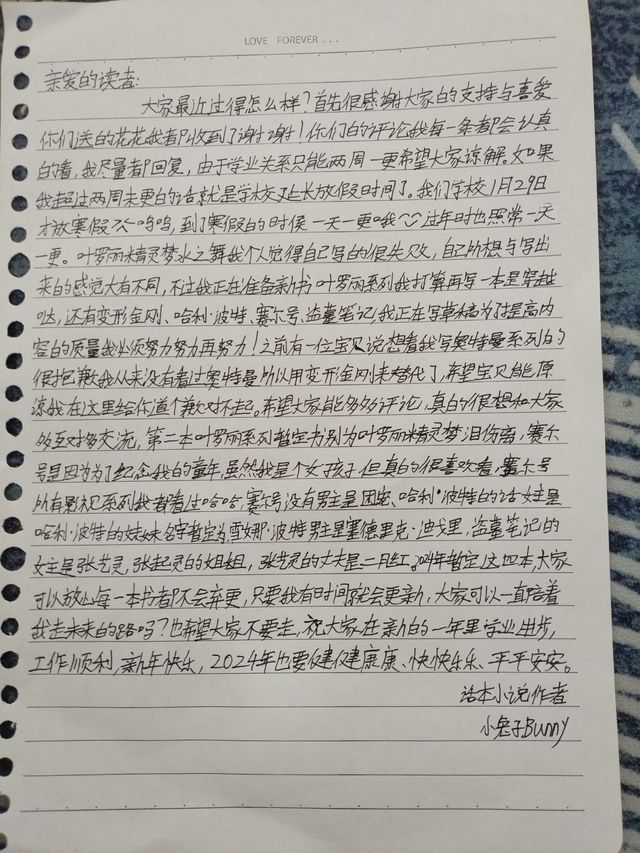 LOVE FOREVER...
亲爱的读者:
大家最近过得怎么样?首先很感谢大家的支持与喜爱
你们送的花花我都收到了谢谢!你们的评论我每一条都会认真
的看,我尽量都回复,由于学业关系只能两周一更希望大家谅解,如果
我超过两周未更的话就是学校又延长放假时间了。我们学校1月29日
才放寒假呜呜,到了寒假的时候一天一更哦过年时也照常一天
一更。叶罗丽精灵梦水之舞我个人觉得自己写的很失败,自己所想与写出
来的感觉大有不同,不过我正在准备新书叶罗丽系列我打算再写一本是穿越
哒,还有变形金刚、哈利·波特、赛尔号、盗墓笔记,我正在写草稿为了提高内
容的质量我必须努力努力再努力!之前有一位宝贝说想看我写奥特曼系列的
很抱歉我从来没有看过奥特曼所以用变形金刚来替代了,希望宝贝能原
谅我在这里给你道个歉对不起。希望大家能多多评论,真的很想和大家
多互动多交流,第二本叶罗丽系列暂定书别为叶罗丽精灵梦泪伤离,赛尔
号是因为为了纪念我的童年,虽然我是个女孩子但真的很喜欢看,赛尔号
所有影视系列我都看过哈哈,赛尔号没有男主是团宠、哈利·波特的话女主是
哈利·波特的妹妹名字暂定为雪娜·波特男主是塞德里克·迪戈里,盗墓笔记的
女主是张艺灵,张起灵的姐姐,张艺灵的丈夫是二月红。2024年暂定这四本,大家
可以放心每一本书都不会弃更,只要我有时间就会更新,大家可以一直陪着
我走未来的路吗?也希望大家不要走,祝大家在新的一年里学业进步,
工作顺利,新年快乐,2024年也要健健康康、快快乐乐、平平安安。
话本小说作者
小兔子Bunny